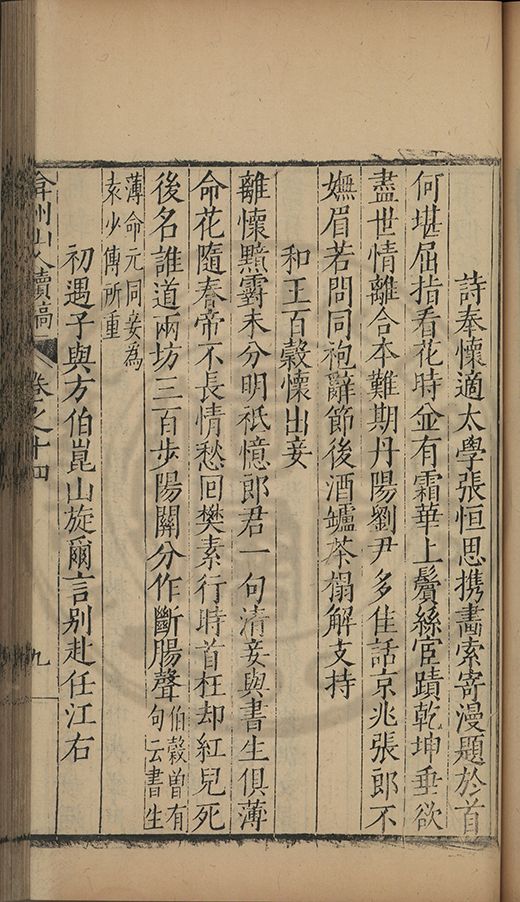 詩奉懷適太學張恒思携畵索寄漫題於首
何堪屈指看花時並有霜華上鬢絲宦蹟乾坤垂欲
盡世情離合本難期丹陽劉尹多佳話京兆張郎不
嫵眉若問同袍辭節後酒罏茶榻解支持
和王百穀懷出妾
離懷黯霽未分明祇憶郎君一句清妾與書生俱薄
命花隨春帝不長情愁囘樊素行時首枉却紅兒死
後名誰道兩坊三百步陽關分作斷腸聲伯穀曾有
句云書生
薄命元同妾為
袁少傅所重
初遇子與方伯崑山旋爾言别赴任江右
弇州山人續稿
卷之十四
九